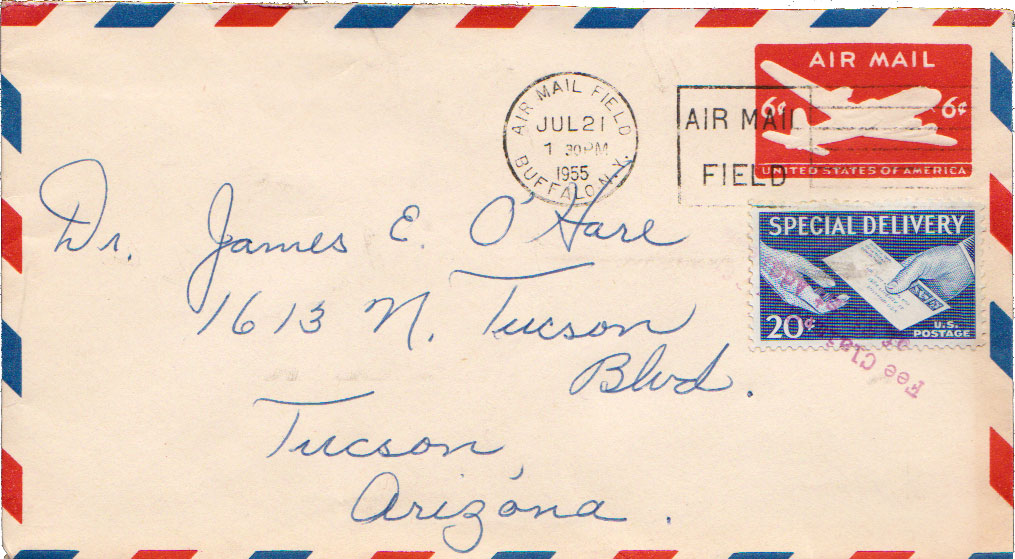 AIR MAIL
6¢ 6¢
UNITED STATES OF AMERICA
AIR MAIL FIELD
JUL 21
1 30 PM
1955
BUFFALO N.Y.
AIR MAIL
FIELD
SPECIAL DELIVERY
20¢
U.S.
POSTAGE
Fee
Dr. James E. O'Hare
1613 N. Tucson
Blvd.
Tucson,
Arizona.